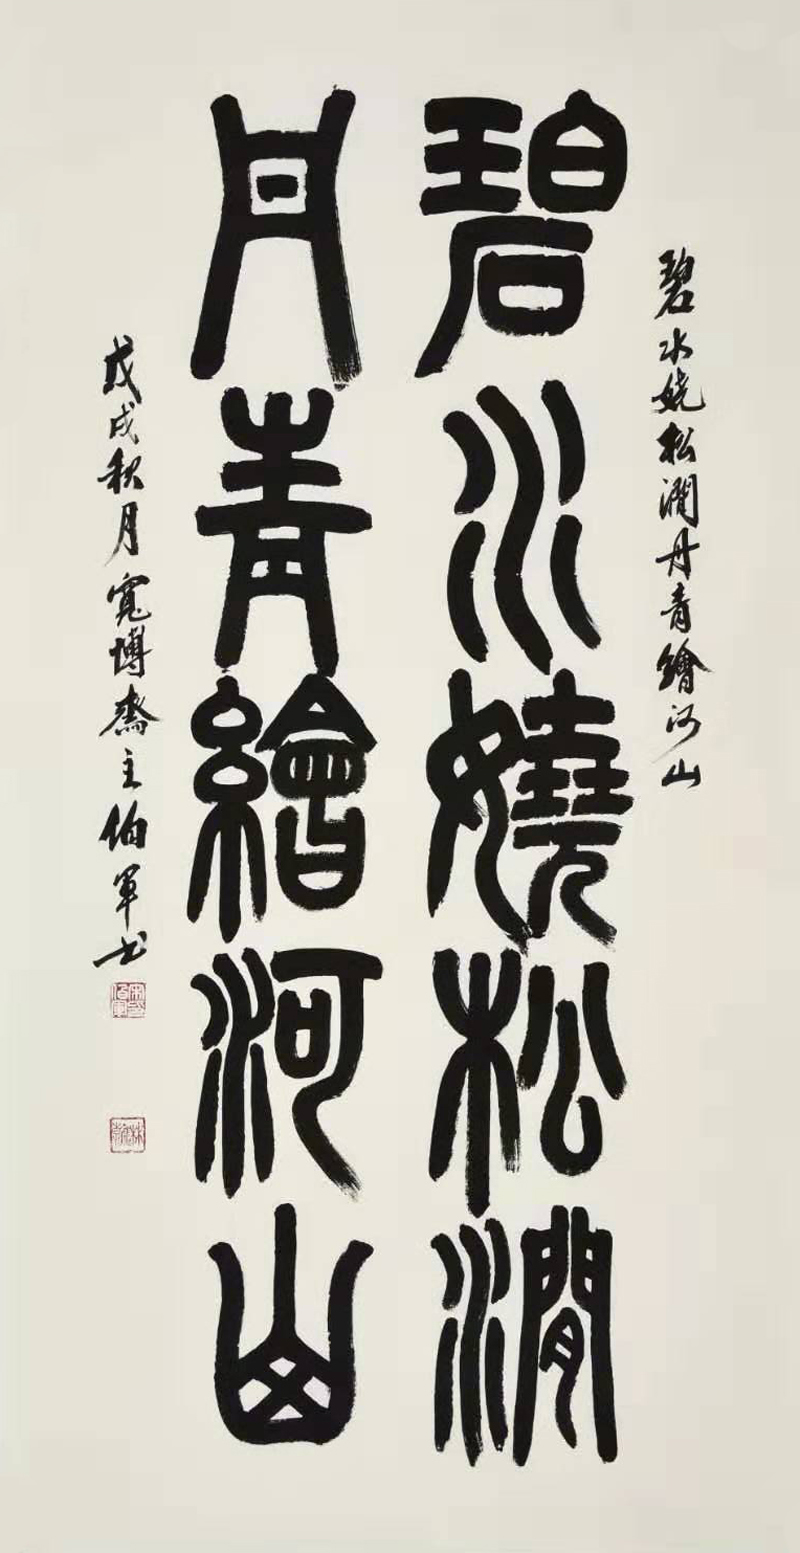 碧水娆松澗丹青繪河山
碧水嬈松澗
丹青繪河山
戊戌秋月寬博齋主伯軍书